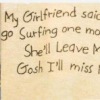 My Girlfriend said
go Surfing one mo
She'll Leave M
Gosh I'll miss